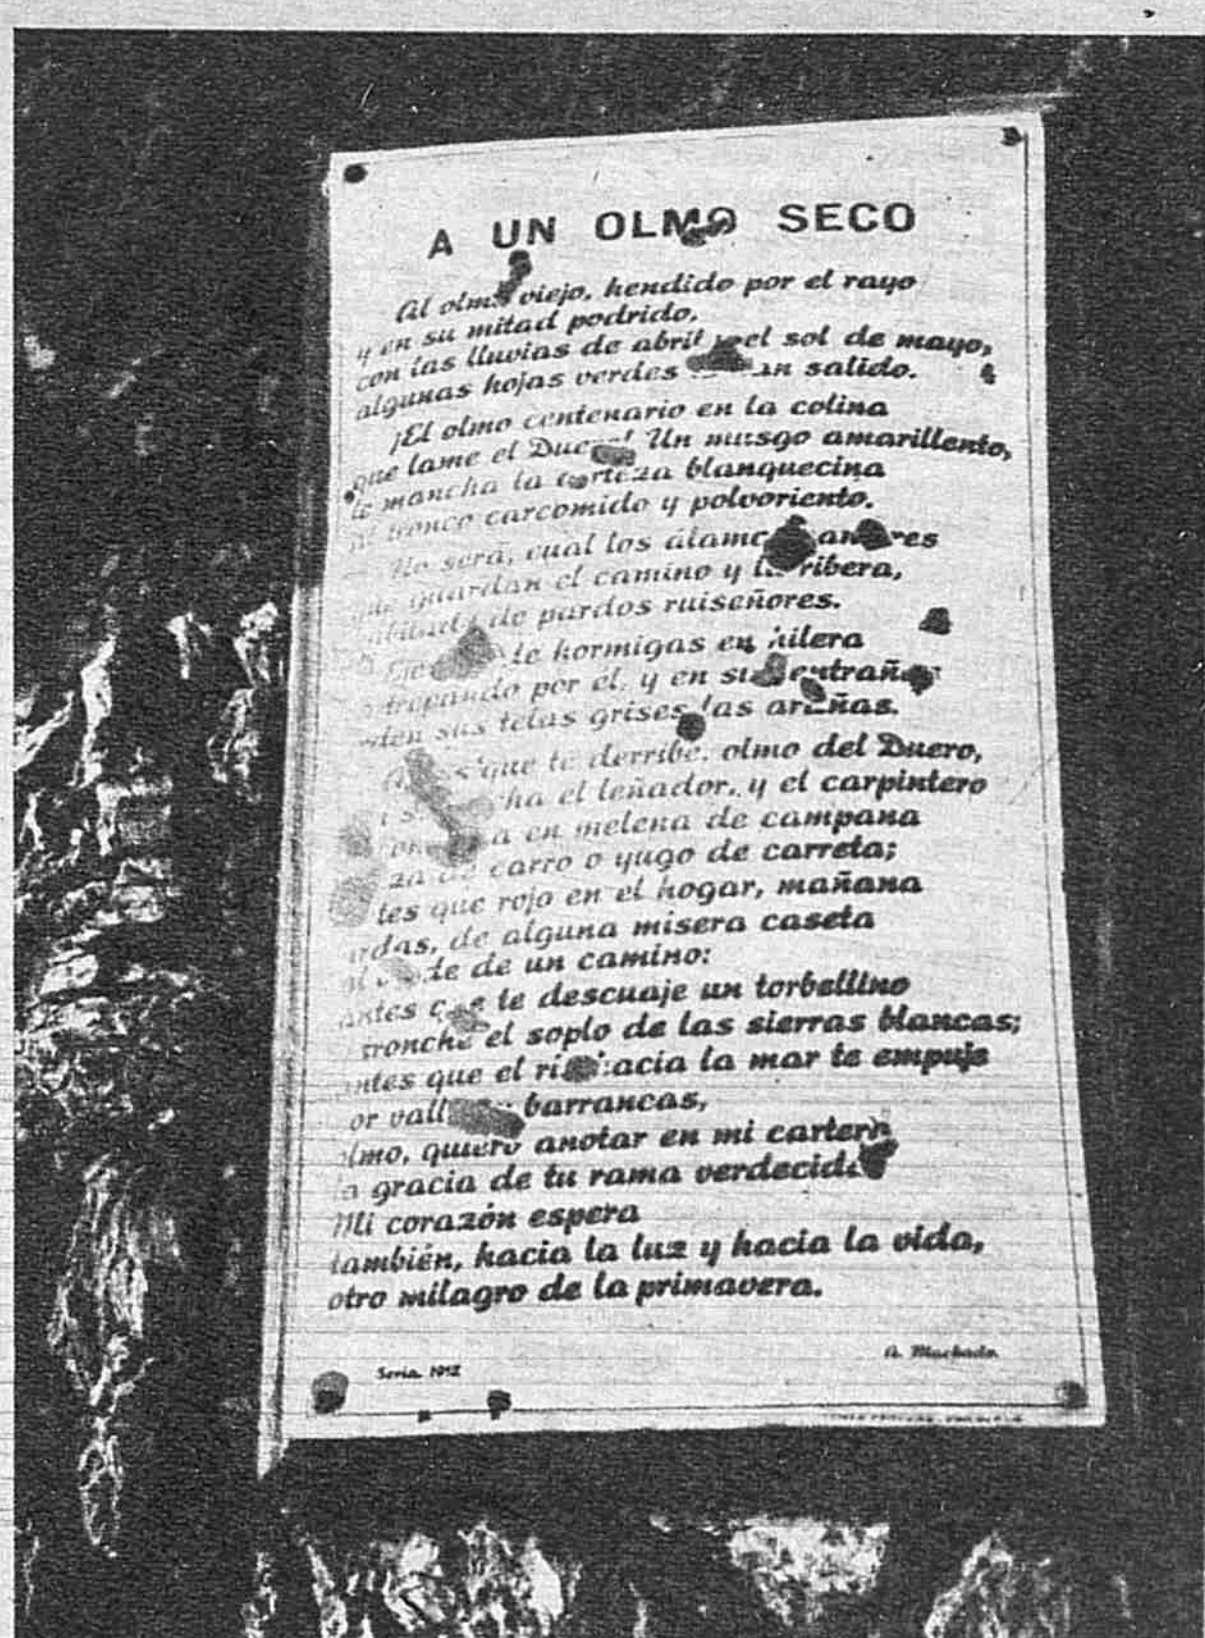 A UN OLMO SECO
Al olmo viejo, hendido por el rayo
y en su mitad podrido,
con las lluvias de abril y el sol de mayo,
algunas hojas verdes salido.
¡El olmo centenario en la colina
que lame el Duero! Un musgo amarillento,
le mancha la corteza blanquecina
al tronco carcomido y polvoriento.
No será, cual los álamos cantores
que guardan el camino y la ribera,
habitado de pardos ruiseñores.
de hormigas en hilera
trepando por él, y en sus entrañas
sus telas grises las arañas.
que te derribe, olmo del Duero,
el leñador, y el carpintero
en melena de campana
de carro o yugo de carreta;
que rojo en el hogar, mañana
de alguna misera caseta
de un camino:
antes que te descuaje un torbellino
el soplo de las sierras blancas;
antes que el río hacia la mar te empuje
barrancas,
olmo, quiero anotar en mi cartera
la gracia de tu rama verdecida
Mi corazón espera
también, hacia la luz y hacia la vida,
otro milagro de la primavera.
A. Machado.
Soria 1912